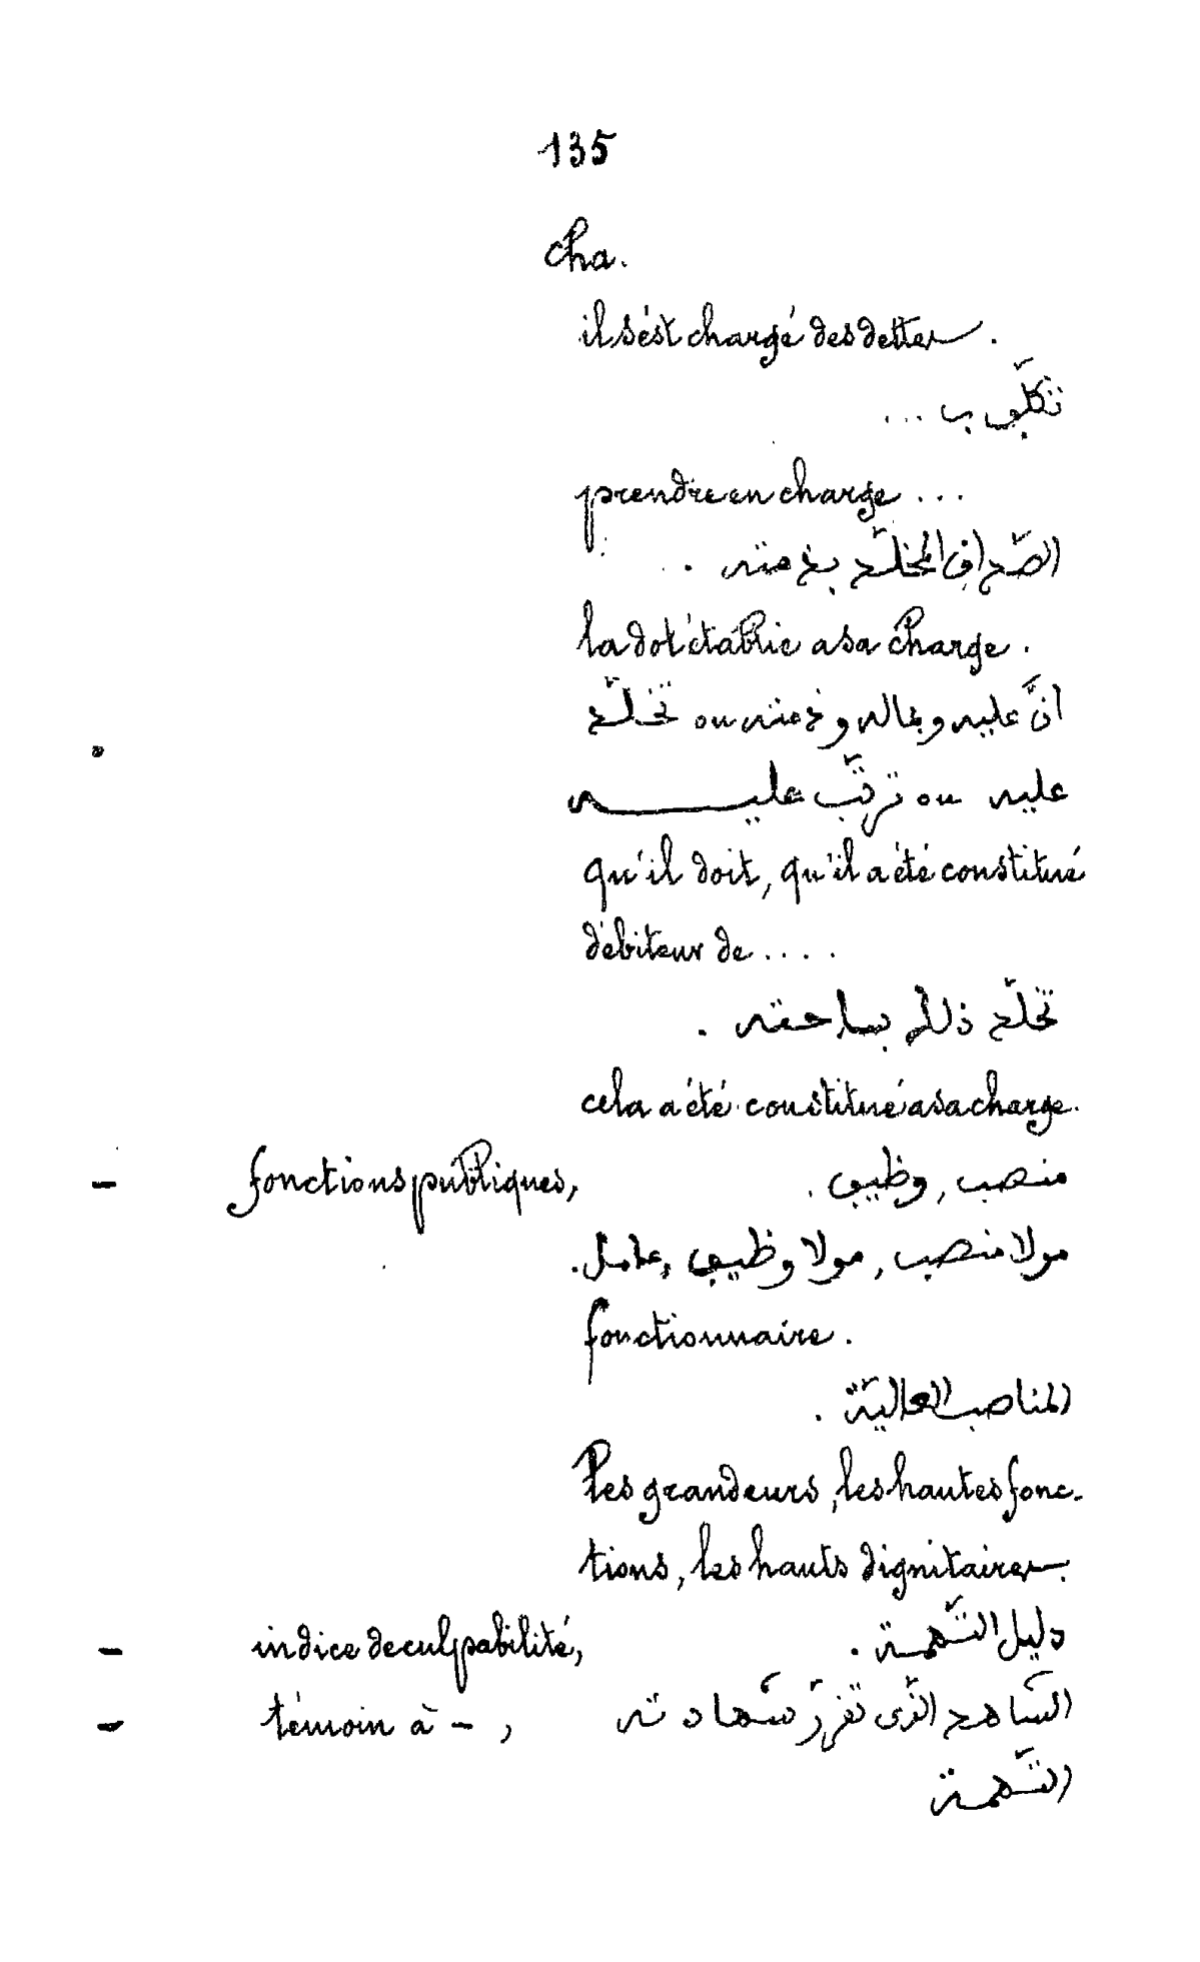 135
cha.
il s'est chargé des dettes.
تكلّف ب ...
prendre en charge ...
الصّداق المخلّد بذمته .
la dot établie a sa charge.
انّ عليه وبماله وذمته ou تخلّد
عليه ou ترتّب عليه
qu'il doit, qu'il a été constitué
débiteur de ....
تخلّد ذلك
cela a été constitué a sa charge.
- fonctions publiques, منصب, وظيف .
مولا منصب, مولا وظيف, عامل.
fonctionnaire.
المناصب العاليّة .
les grandeurs, les hautes fonc-
tions, les hauts dignitaires.
- indice de culpabilité, دليل التّهمة .
- témoin à -, الشّاهد الّذي تقرّر شهادته
التّهمة